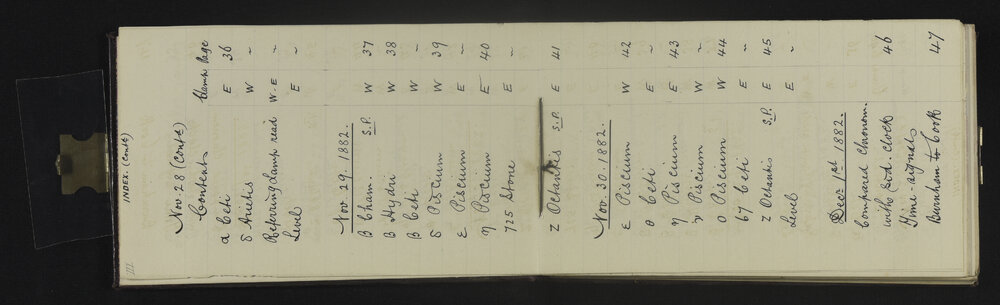 III
INDEX. (Cont^d)
Nov. 28 (Cont^d)
Contents Clamp Page
α Ceti E 36
δ Arietis W "
Referring Lamp read W-E "
Level E "
Nov. 29. 1882.
β Cham. S.P. W 37
β Hydri W 38
β Ceti W "
δ Piscium W 39
ε Piscium E "
η Piscium E 40
725 Stone E "
Z Octantis S.P. E 41
Nov. 30. 1882.
ε Piscium W 42
θ Ceti E "
η Piscium E 43
ν Piscium W "
ο Piscium W 44
67 Ceti E "
Z Octantis S.P. E 45
Level E "
Dec^r 1^st 1882.
Compared Chronom.
with Sid. clock 46
Time-signals
Burnham to Cooth 47